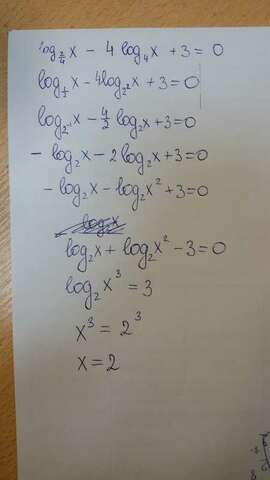 log_{2/4} x - 4 log_4 x + 3 = 0
log_{1/2} x - 4 log_{2^2} x + 3 = 0
log_{2^{-1}} x - 4/2 log_2 x + 3 = 0
- log_2 x - 2 log_2 x + 3 = 0
- log_2 x - log_2 x^2 + 3 = 0
log_2 x + log_2 x^2 - 3 = 0
log_2 x^3 = 3
x^3 = 2^3
x = 2